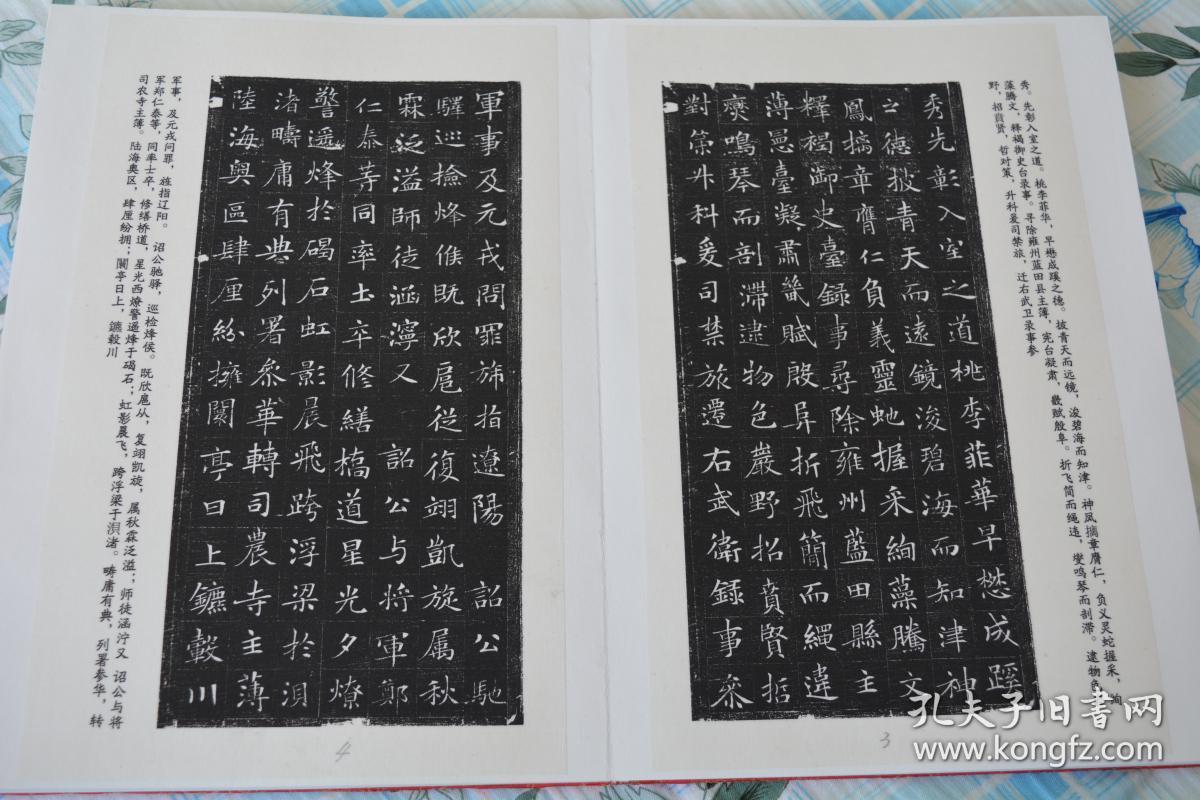 秀。先彰入室之道。桃李菲华，早懋成蹊之德。披青天而远镜，浚碧海而知津。神凤摛章膺仁，负义灵蛇握采，绚
藻腾文，释褐御史台录事。寻除雍州蓝田县主簿，宪台凝肃，畿赋殷阜。折飞简而绳违，燮鸣琴而剖滞。逮物色
野，招賁贤，哲对策，升科爰司禁旅，迁右武卫录事参
秀先彰入室之道桃李菲華早懋成蹊
之德披青天而遠鏡浚碧海而知津神
鳳摛章膺仁負義靈虵握采絢藻騰文
釋褐御史臺錄事尋除雍州藍田縣主
薄憲臺凝肅畿賦殷阜折飛簡而繩違
爕鳴琴而剖滯逮物色巖野招賁賢哲
對策升科爰司禁旅遷右武衛錄事叅
3
軍事及元戎問罪斾指遼陽 詔公馳
驛巡撿烽候既欣扈從復翊凱旋属秋
霖泛溢師徒涵濘又 詔公与將軍鄭
仁泰等同率士卒修繕橋道星光夕燎
警遥烽於碣石虹影晨飛跨浮梁於浿
渚疇庸有典列署叅華轉司農寺主薄
陸海奧區肆厘紛擁闤亭日上鑣轂川
4
军事，及元戎问罪，旌指辽阳。 诏公驰驿，巡检烽侯。既欣扈从，复翊凯旋，属秋霖泛溢；师徒涵泞又 诏公与将
军郑仁泰等，同率士卒，修缮桥道，星光西燎警遥烽于碣石；虹影晨飞，跨浮梁于浿渚。畴庸有典，列署参华，转
司农寺主簿。陆海奥区，肆厘纷拥；闤亭日上，镳毂川
孔夫子旧书网
www.kongfz.com